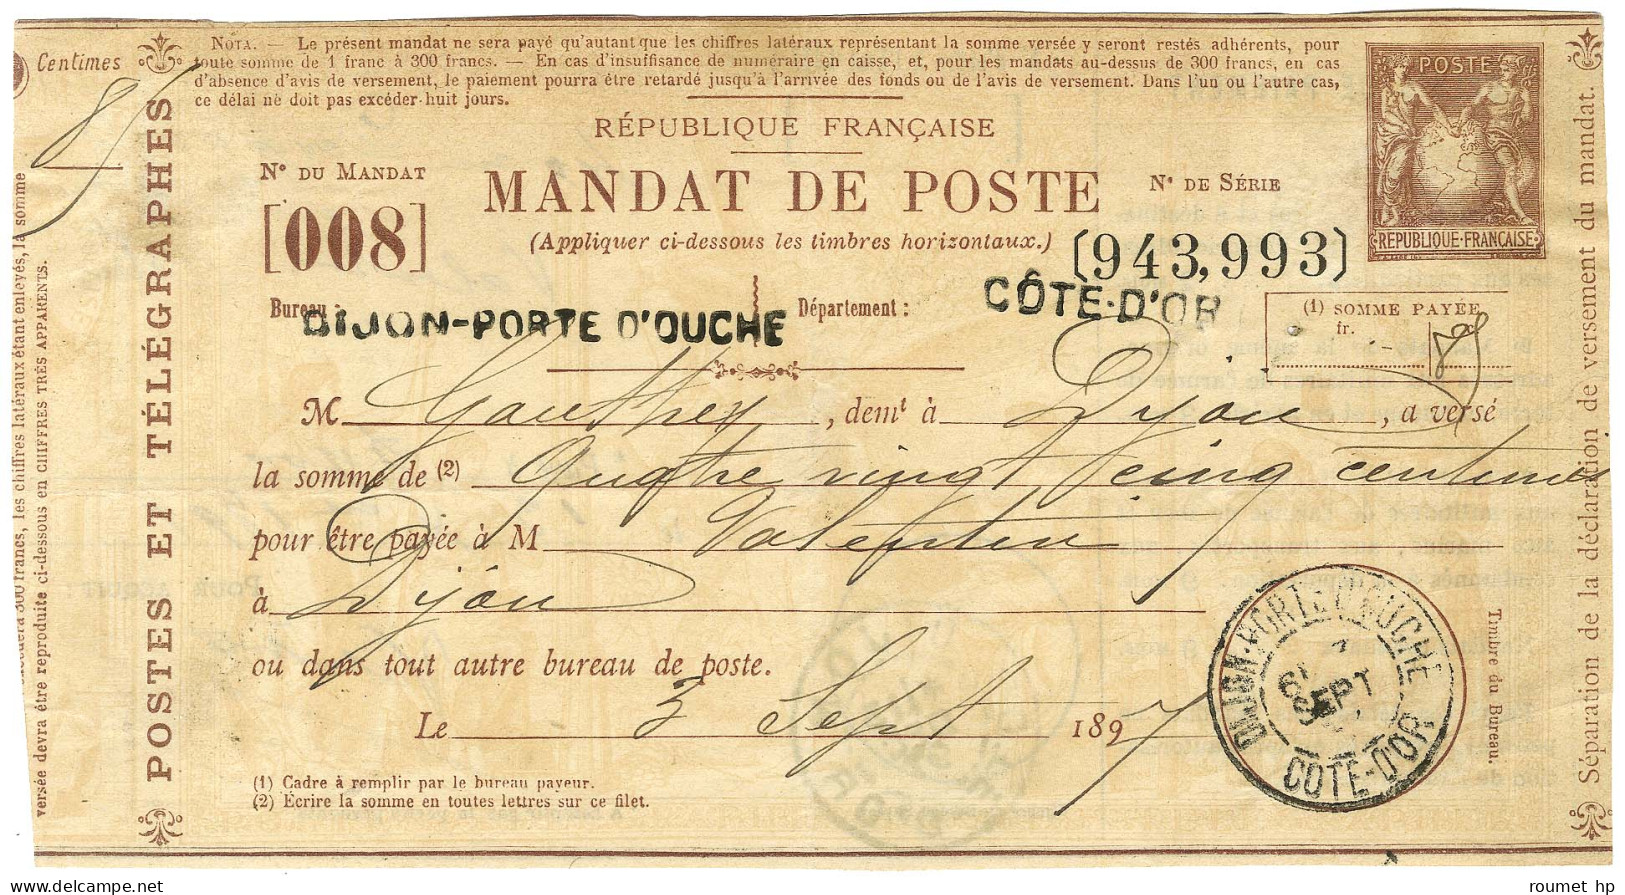 Centimes
85
NOTA. — Le présent mandat ne sera payé qu'autant que les chiffres latéraux représentant la somme versée y seront restés adhérents, pour
toute somme de 1 franc à 300 francs. — En cas d'insuffisance de numéraire en caisse, et, pour les mandats au-dessus de 300 francs, en cas
d'absence d'avis de versement, le paiement pourra être retardé jusqu'à l'arrivée des fonds ou de l'avis de versement. Dans l'un ou l'autre cas,
ce délai ne doit pas excéder huit jours.
POSTE
REPUBLIQUE-FRANÇAISE
RÉPUBLIQUE FRANÇAISE
N° DU MANDAT
[008]
MANDAT DE POSTE
(Appliquer ci-dessous les timbres horizontaux.)
N° DE SÉRIE
[943,993]
Bureau :
DIJON-PORTE D'OUCHE
Département :
CÔTE-D'OR
(1) SOMME PAYÉE
fr.
85
M Gauthey, demt à Dijon, a versé
la somme de (2) Quatre vingt cinq centimes
pour être payée à M Valentin
à Dijon
ou dans tout autre bureau de poste.
Le 3 Sept 1897
(1) Cadre à remplir par le bureau payeur.
(2) Écrire la somme en toutes lettres sur ce filet.
DIJON-PORTE D'OUCHE
SEPT
COTE-D'OR
Timbre du Bureau.
Séparation de la déclaration de versement du mandat.
POSTES ET TÉLÉGRAPHES
300 francs, les chiffres latéraux étant enlevés, la somme
versée devra être reproduite ci-dessous en CHIFFRES TRÈS APPARENTS.
POUR ACQUIT :
roumet hp